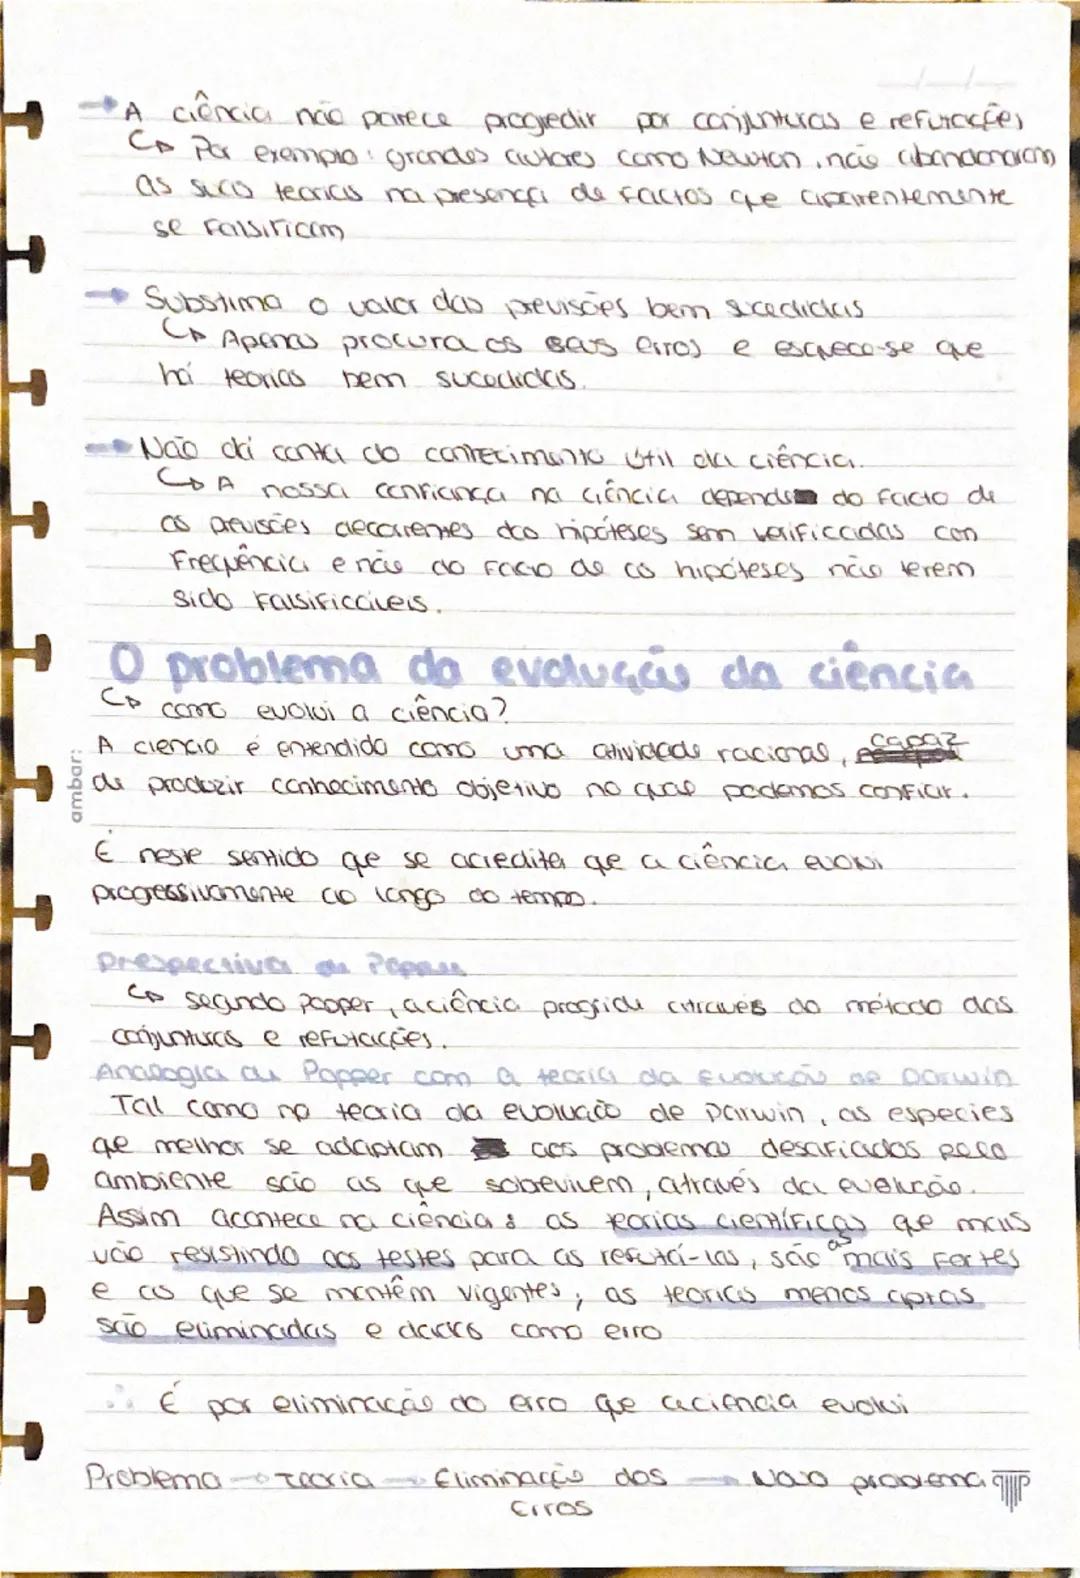 → A ciência não parece progredir por conjunturas e refutações
↳ Por exemplo: grandes autores como Newton, não abandonaram
as suas teorias na presença de factos que aparentemente
se falsificam
→ Substima o valor das previsões bem sucedidas
↳ Apenas procura os seus erros e esquece-se que
há teorias bem sucedidas.
→ Não dá conta do conhecimento útil da ciência.
↳ A nossa confiança na ciência depende do facto de
as previsões decorrentes das hipóteses sem verificadas con
Frequência e não do facto de as hipóteses não terem
sido falsificáveis.
O problema da evolução da ciência
↳ como evolui a ciência?
A ciencia é entendida como uma atividade racional, capaz
de produzir conhecimento objetivo no qual podemos confiar.
É neste sentido que se acredita que a ciência evolui
progressivamente ao longo do tempo.
Prespectiva de Popper
↳ segundo Popper, a ciência progride através do método das
conjunturas e refutações.
Analogia de Popper com a teoria da evolução de Darwin
Tal como na teoria da evolução de Darwin, as especies
que melhor se adaptam aos problemas desafiados pelo
ambiente são as que sobrevivem, através da evolução.
Assim acontece na ciência: as teorias científicas que mais
vão resistindo aos testes para as refutá-las, são as mais fortes
e as que se mantêm vigentes, as teorias menos aptas
são eliminadas e dadas como erro
∴ É por eliminação do erro que a ciência evolui
Problema → Teoria → Eliminação dos → Novo problema
Erros
ambar: